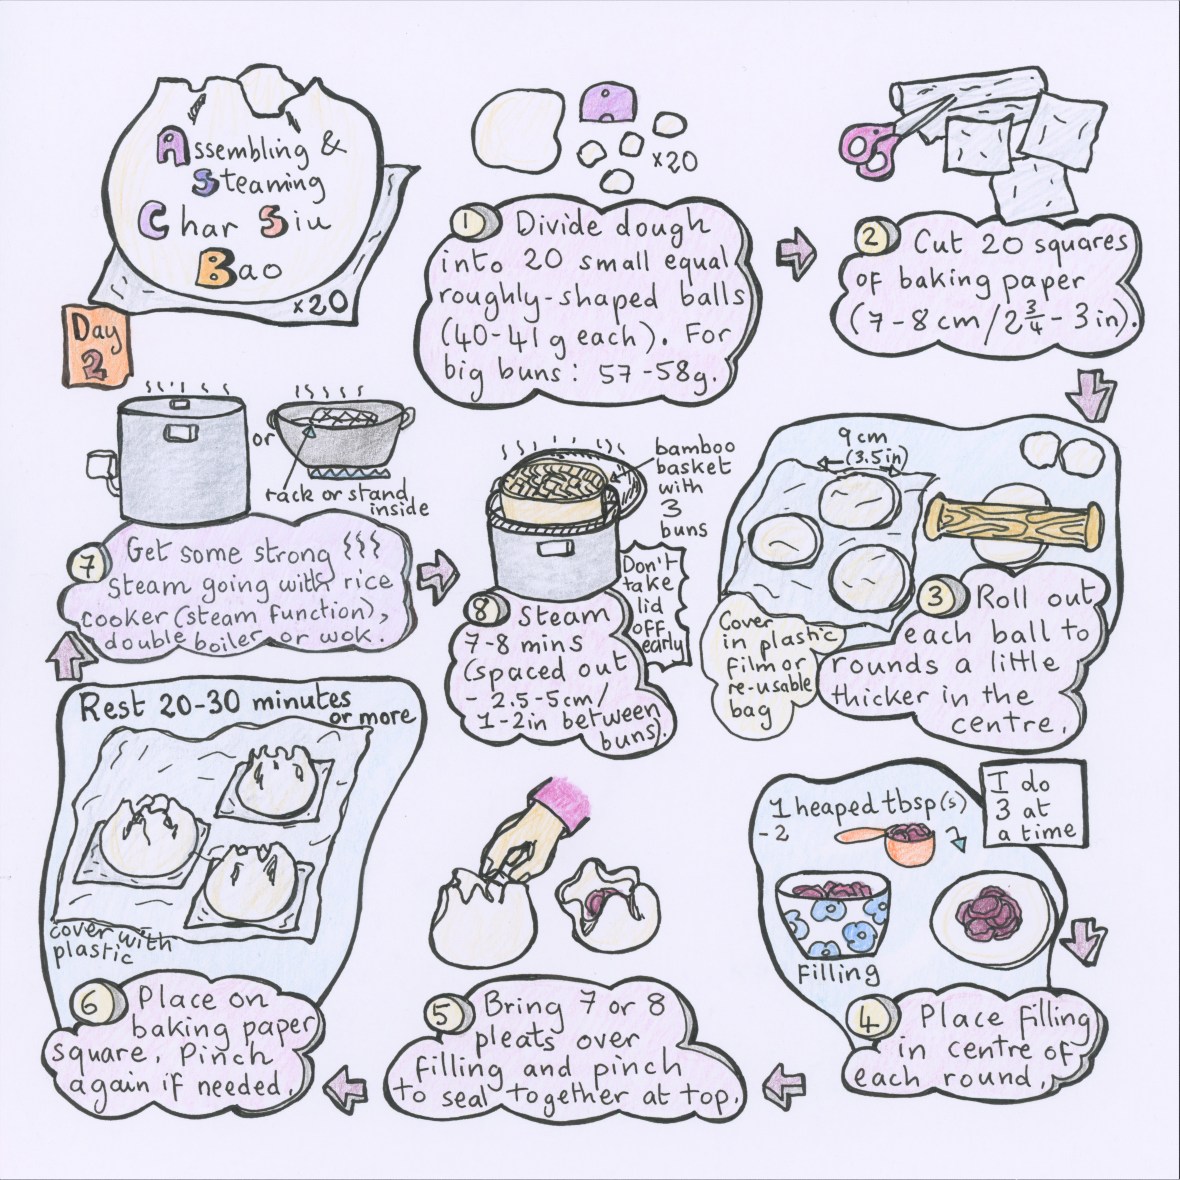 Assembling &
Steaming
Char Siu
Bao
x20
Day
2
x20
1 Divide dough
into 20 small equal
roughly-shaped balls
(40-41g each). For
big buns: 57-58g.
2 Cut 20 squares
of baking paper
(7-8cm/2¾-3in).
9cm
(3.5in)
Cover
in plastic
film or
re-usable
bag
3 Roll out
each ball to
rounds a little
thicker in the
centre.
I do
3 at
a time
1 heaped tbsp(s)
-2
Filling
4 Place filling
in centre of
each round.
5 Bring 7 or 8
pleats over
filling and pinch
to seal together at top.
Rest 20-30 minutes
or more
cover with
plastic
6 Place on
baking paper
square. Pinch
again if needed.
or
rack or stand
inside
7 Get some strong
steam going with rice
cooker (steam function),
double boiler or wok.
bamboo
basket
with
3
buns
Don't
take
lid
off
early
8 Steam
7-8 mins
(spaced out
- 2.5-5cm/
1-2in between
buns).